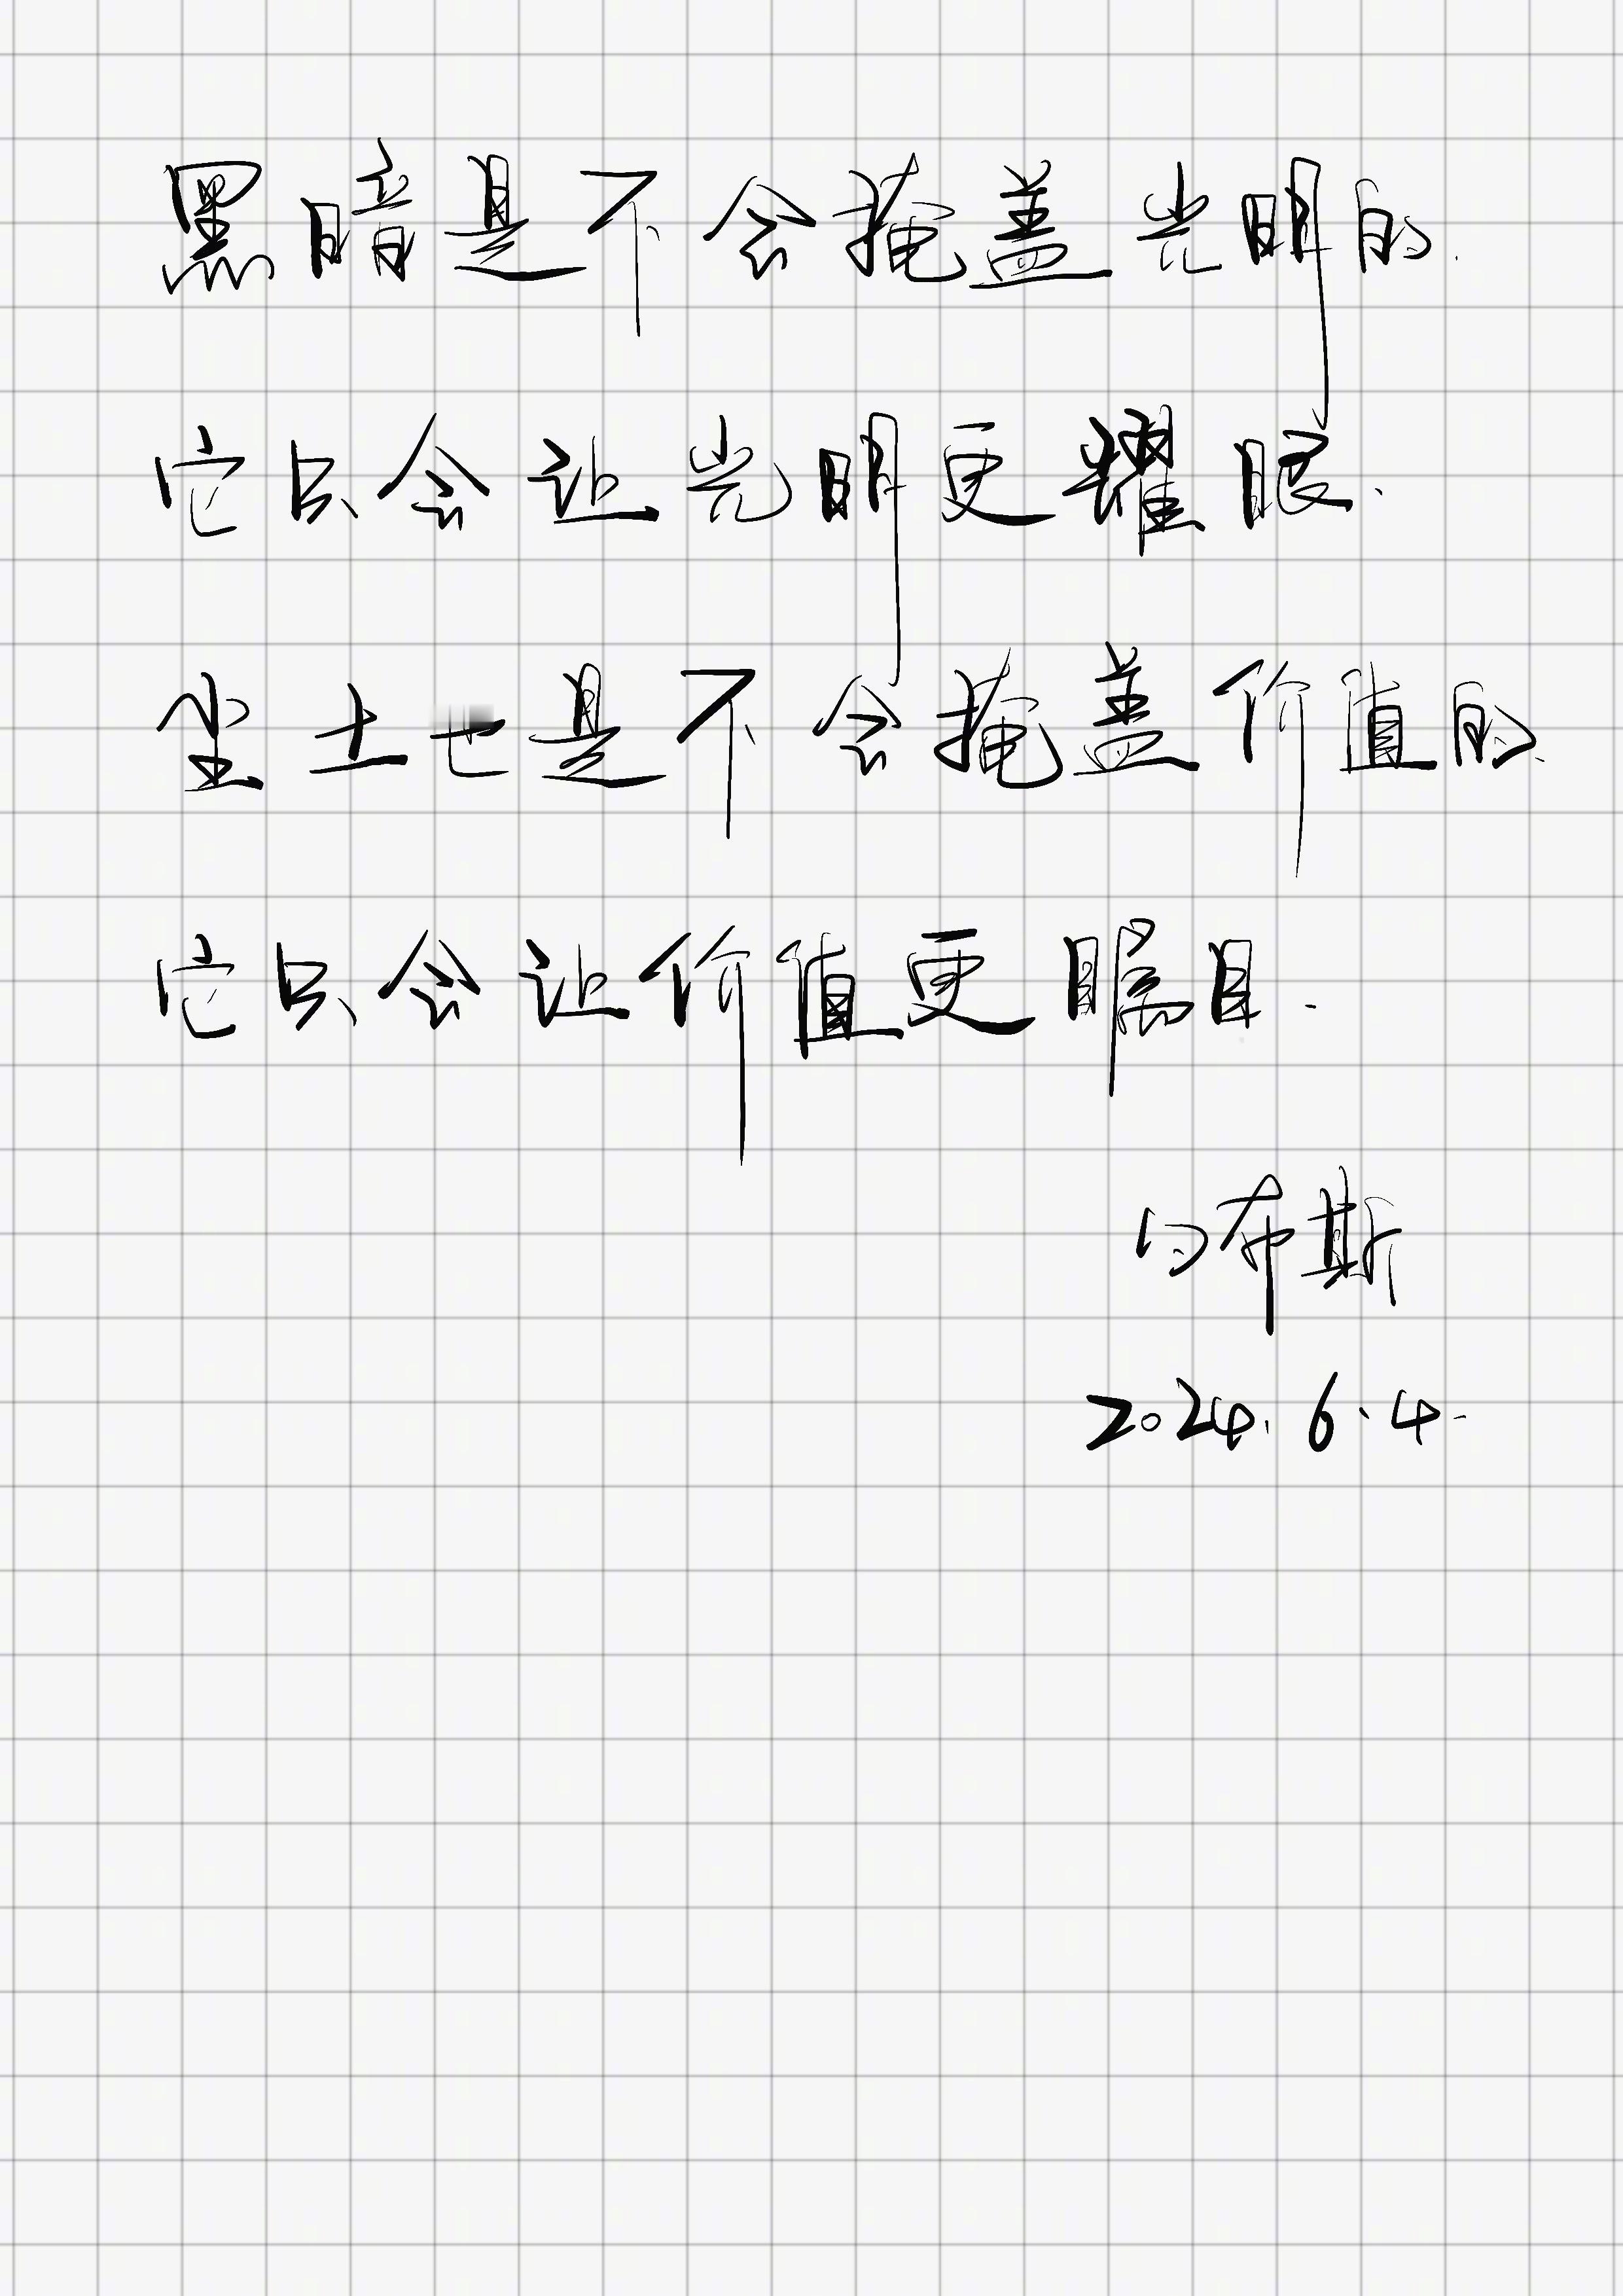 黑暗是不会掩盖光明的.
它只会让光明更耀眼.
尘土也是不会掩盖价值的.
它只会让价值更瞩目.
布斯
2024.6.4.